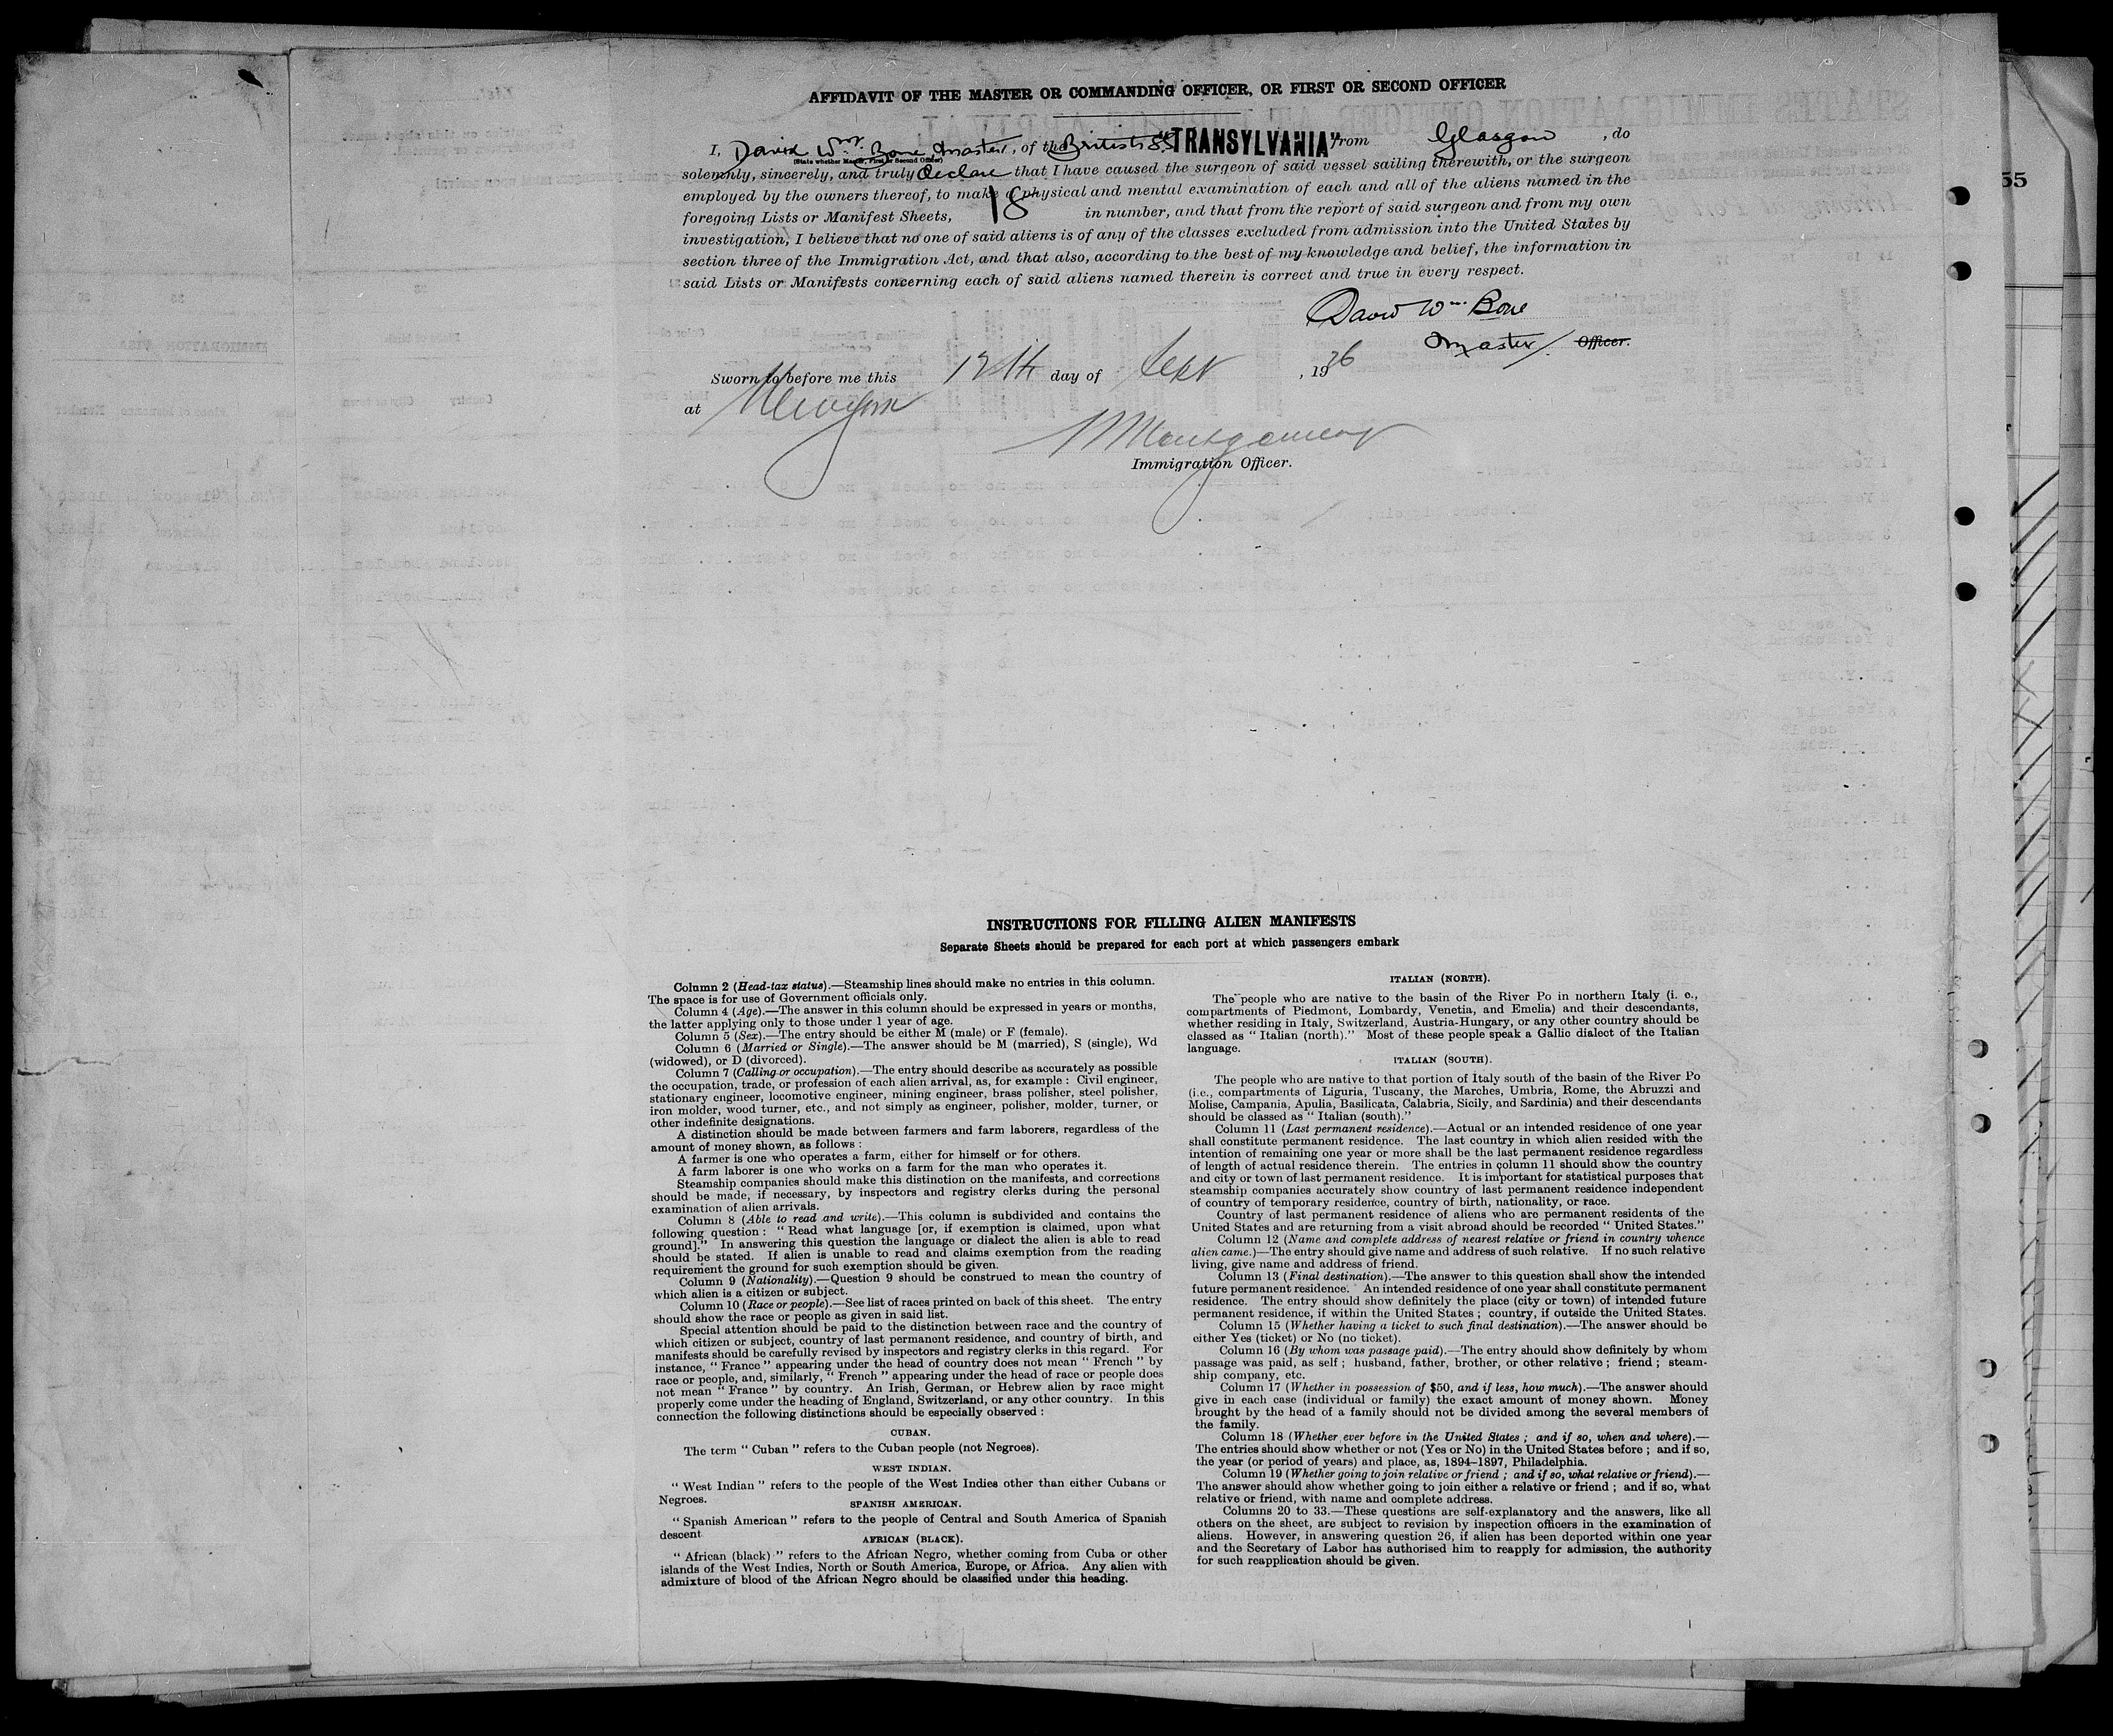 AFFIDAVIT OF THE MASTER OR COMMANDING OFFICER, OR FIRST OR SECOND OFFICER
I, David Wm. Bone, Master, of the British SS "TRANSYLVANIA" from Glasgow, do
(State whether Master, First or Second Officer)
solemnly, sincerely, and truly declare that I have caused the surgeon of said vessel sailing therewith, or the surgeon
employed by the owners thereof, to make a physical and mental examination of each and all of the aliens named in the
foregoing Lists or Manifest Sheets, 18 in number, and that from the report of said surgeon and from my own
investigation, I believe that no one of said aliens is of any of the classes excluded from admission into the United States by
section three of the Immigration Act, and that also, according to the best of my knowledge and belief, the information in
said Lists or Manifests concerning each of said aliens named therein is correct and true in every respect.
David Wm. Bone
Master Officer.
Sworn to before me this 12th day of Sept, 1926
at New York
Montgomery
Immigration Officer.
55
INSTRUCTIONS FOR FILLING ALIEN MANIFESTS
Separate Sheets should be prepared for each port at which passengers embark
Column 2 (Head-tax status).—Steamship lines should make no entries in this column.
The space is for use of Government officials only.
Column 4 (Age).—The answer in this column should be expressed in years or months,
the latter applying only to those under 1 year of age.
Column 5 (Sex).—The entry should be either M (male) or F (female).
Column 6 (Married or Single).—The answer should be M (married), S (single), Wd
(widowed), or D (divorced).
Column 7 (Calling or occupation).—The entry should describe as accurately as possible
the occupation, trade, or profession of each alien arrival, as, for example : Civil engineer,
stationary engineer, locomotive engineer, mining engineer, brass polisher, steel polisher,
iron molder, wood turner, etc., and not simply as engineer, polisher, molder, turner, or
other indefinite designations.
A distinction should be made between farmers and farm laborers, regardless of the
amount of money shown, as follows :
A farmer is one who operates a farm, either for himself or for others.
A farm laborer is one who works on a farm for the man who operates it.
Steamship companies should make this distinction on the manifests, and corrections
should be made, if necessary, by inspectors and registry clerks during the personal
examination of alien arrivals.
Column 8 (Able to read and write).—This column is subdivided and contains the
following question : " Read what language [or, if exemption is claimed, upon what
ground]." In answering this question the language or dialect the alien is able to read
should be stated. If alien is unable to read and claims exemption from the reading
requirement the ground for such exemption should be given.
Column 9 (Nationality).—Question 9 should be construed to mean the country of
which alien is a citizen or subject.
Column 10 (Race or people).—See list of races printed on back of this sheet. The entry
should show the race or people as given in said list.
Special attention should be paid to the distinction between race and the country of
which citizen or subject, country of last permanent residence, and country of birth, and
manifests should be carefully revised by inspectors and registry clerks in this regard. For
instance, " France " appearing under the head of country does not mean " French " by
race or people, and, similarly, " French " appearing under the head of race or people does
not mean " France " by country. An Irish, German, or Hebrew alien by race might
properly come under the heading of England, Switzerland, or any other country. In this
connection the following distinctions should be especially observed :
CUBAN.
The term " Cuban " refers to the Cuban people (not Negroes).
WEST INDIAN.
" West Indian " refers to the people of the West Indies other than either Cubans or
Negroes.
SPANISH AMERICAN.
" Spanish American " refers to the people of Central and South America of Spanish
descent
AFRICAN (BLACK).
" African (black) " refers to the African Negro, whether coming from Cuba or other
islands of the West Indies, North or South America, Europe, or Africa. Any alien with
admixture of blood of the African Negro should be classified under this heading.
ITALIAN (NORTH).
The people who are native to the basin of the River Po in northern Italy (i. e.,
compartments of Piedmont, Lombardy, Venetia, and Emelia) and their descendants,
whether residing in Italy, Switzerland, Austria-Hungary, or any other country should be
classed as " Italian (north)." Most of these people speak a Gallic dialect of the Italian
language.
ITALIAN (SOUTH).
The people who are native to that portion of Italy south of the basin of the River Po
(i.e., compartments of Liguria, Tuscany, the Marches, Umbria, Rome, the Abruzzi and
Molise, Campania, Apulia, Basilicata, Calabria, Sicily, and Sardinia) and their descendants
should be classed as " Italian (south)."
Column 11 (Last permanent residence).—Actual or an intended residence of one year
shall constitute permanent residence. The last country in which alien resided with the
intention of remaining one year or more shall be the last permanent residence regardless
of length of actual residence therein. The entries in column 11 should show the country
and city or town of last permanent residence. It is important for statistical purposes that
steamship companies accurately show country of last permanent residence independent
of country of temporary residence, country of birth, nationality, or race.
Country of last permanent residence of aliens who are permanent residents of the
United States and are returning from a visit abroad should be recorded " United States."
Column 12 (Name and complete address of nearest relative or friend in country whence
alien came.)—The entry should give name and address of such relative. If no such relative
living, give name and address of friend.
Column 13 (Final destination).—The answer to this question shall show the intended
future permanent residence. An intended residence of one year shall constitute permanent
residence. The entry should show definitely the place (city or town) of intended future
permanent residence, if within the United States ; country, if outside the United States.
Column 15 (Whether having a ticket to such final destination).—The answer should be
either Yes (ticket) or No (no ticket).
Column 16 (By whom was passage paid).—The entry should show definitely by whom
passage was paid, as self ; husband, father, brother, or other relative ; friend ; steam-
ship company, etc.
Column 17 (Whether in possession of $50, and if less, how much).—The answer should
give in each case (individual or family) the exact amount of money shown. Money
brought by the head of a family should not be divided among the several members of
the family.
Column 18 (Whether ever before in the United States ; and if so, when and where).—
The entries should show whether or not (Yes or No) in the United States before ; and if so,
the year (or period of years) and place, as, 1894–1897, Philadelphia.
Column 19 (Whether going to join relative or friend ; and if so, what relative or friend).—
The answer should show whether going to join either a relative or friend ; and if so, what
relative or friend, with name and complete address.
Columns 20 to 33.—These questions are self-explanatory and the answers, like all
others on the sheet, are subject to revision by inspection officers in the examination of
aliens. However, in answering question 26, if alien has been deported within one year
and the Secretary of Labor has authorised him to reapply for admission, the authority
for such reapplication should be given.